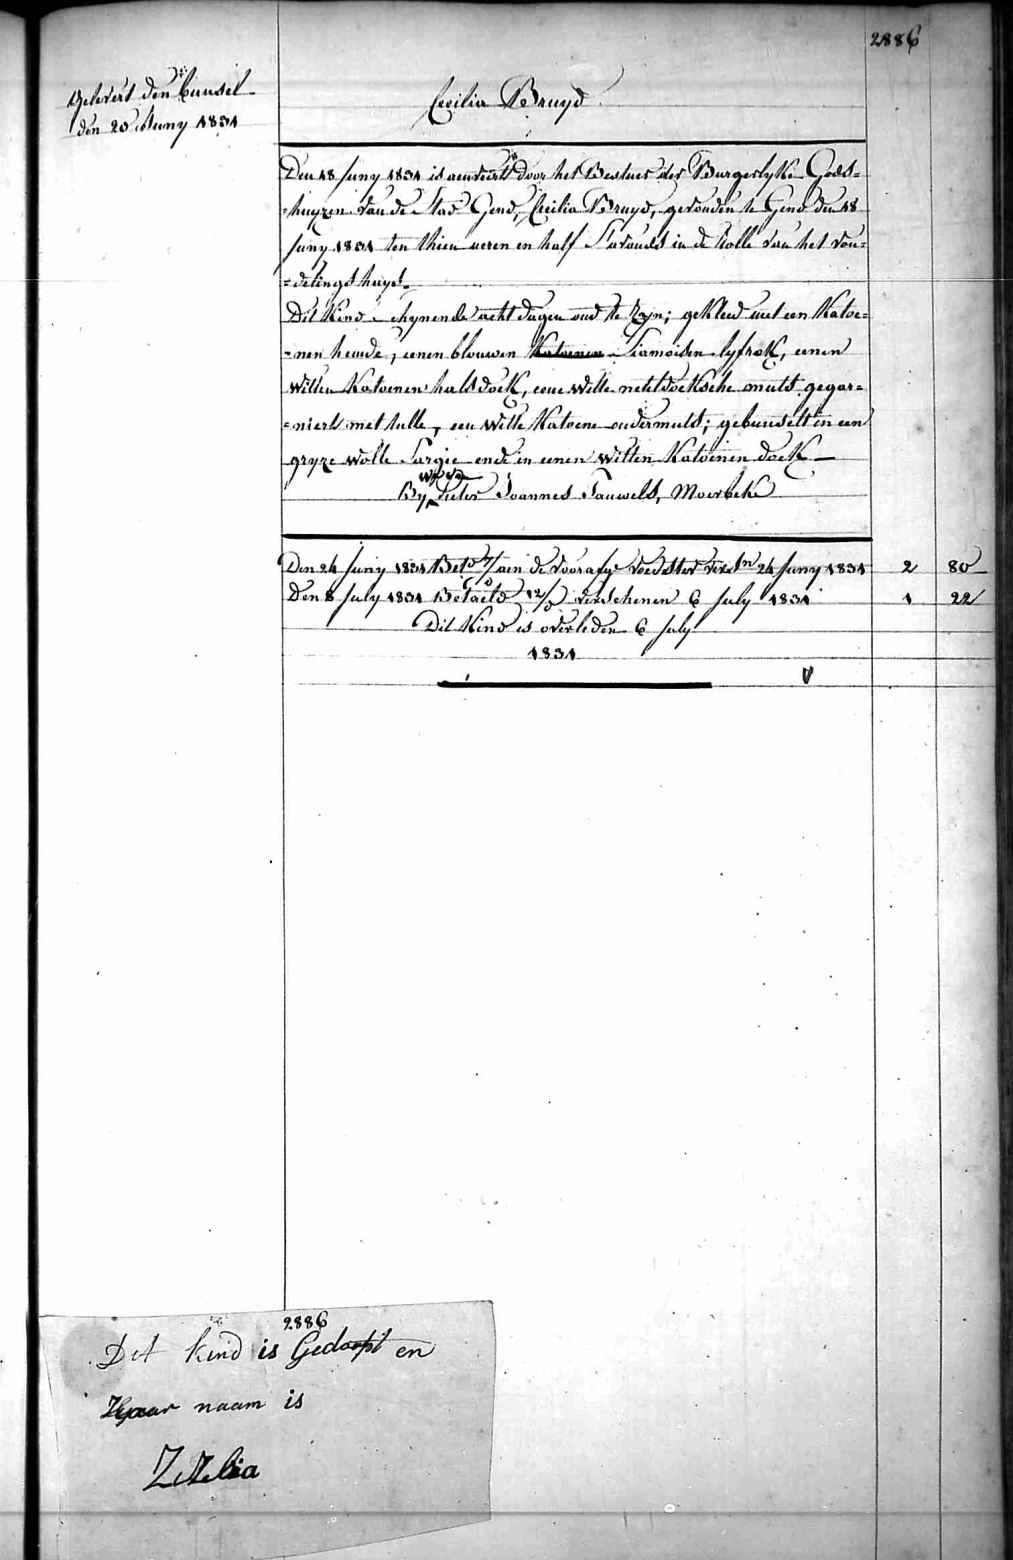 2886
Gelevert den bunsel
den 20 Juny 1831
Cecilia Bruyd
Den 18 Juny 1831 is aenveird door het Bestuer der Burgerlyke Gods=
=huyzen van de Stad Gend, Cecilia Bruyd, gevonden te Gend den 18
Juny 1831 ten thien ueren en half S'avonds in de Rolle van het von=
=delingshuys.
Dit Kind schynende acht dagen oud te Zyn; gekleed met een Katoe=
=nen hemde, eenen blauwen Katoenen Siamoisen lyfrok, eenen
Witten Katoenen halsdoek, eene Witte neteldoeksche muts gegar=
=niert met tulle, een Witte Katoene ondermuts; gebunselt in een
gryze Wolle Sargie ende in eenen Witten Katoenen doek
By Pieter Joannes Pauwels, Moerbeke
Den 24 Juny 1831 Bet aen de voorafge voedster versn 24 Juny 1831 2 80
Den 8 July 1831 Betaeld 12/ verschenen 6 July 1831 1 22
Dit Kind is overleden 6 July
1831
V
2886
Det kind is Gedoopt en
Haar naam is
ZeZelia